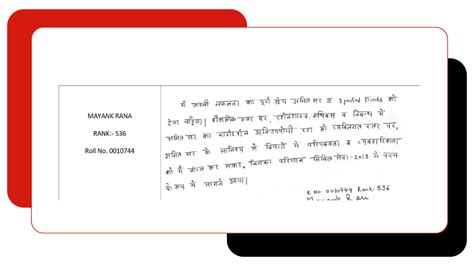 MAYANK RANA
RANK:- 536
Roll No. 0010744
मैं अपनी सफलता का पूर्ण श्रेय अमित सर व Ignited Minds को
देना चाहूँगा। शैक्षणिक स्तर पर, दर्शनशास्त्र, एथिक्स व निबन्ध में
अमित सर का मार्गदर्शन अतिउपयोगी रहा तो व्यक्तिगत स्तर पर,
अमित सर के सानिध्य से विचारों में परिपक्वता व व्यवहारिकता
को मैं प्राप्त कर सका, जिसका परिणाम सिविल सेवा-2015 में चयन
के रूप में सामने आया।
R No 0010744 Rank 536
Mayank Rana